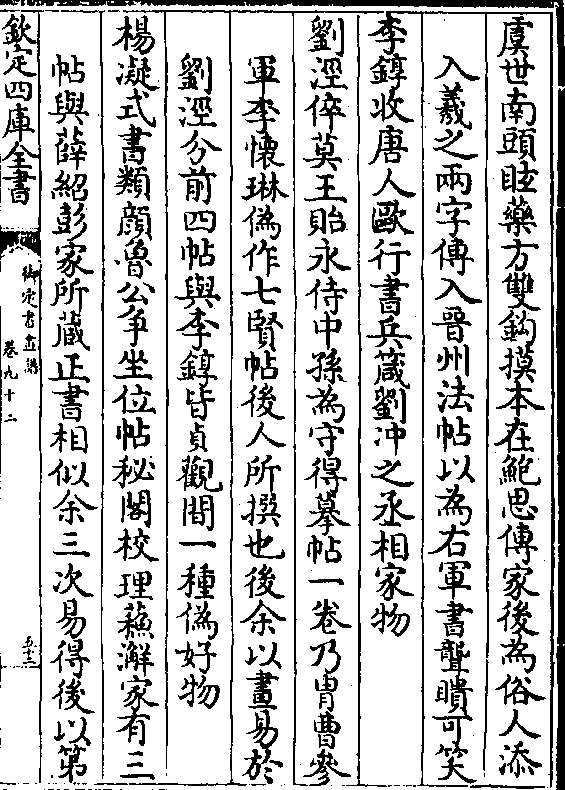 虞世南頭眩藥方雙鈎摸本在鮑思傳家後為俗人添
入羲之兩字傳入晉州法帖以為右軍書聾瞶可笑
李錞收唐人歐行書兵箴劉沖之丞相家物
劉涇倅莫王貽永侍中孫為守得摹帖一卷乃胄曹參
軍李懷琳偽作七賢帖後人所撰也後余以畫易於
劉涇分前四帖與李錞皆貞觀間一種偽好物
楊凝式書類顔魯公爭坐位帖秘閣校理蘇澥家有三
帖與薛紹彭家所蔵正書相似余三次易得後以第
欽定四庫全書
御定書畫譜
卷九十二
五十三